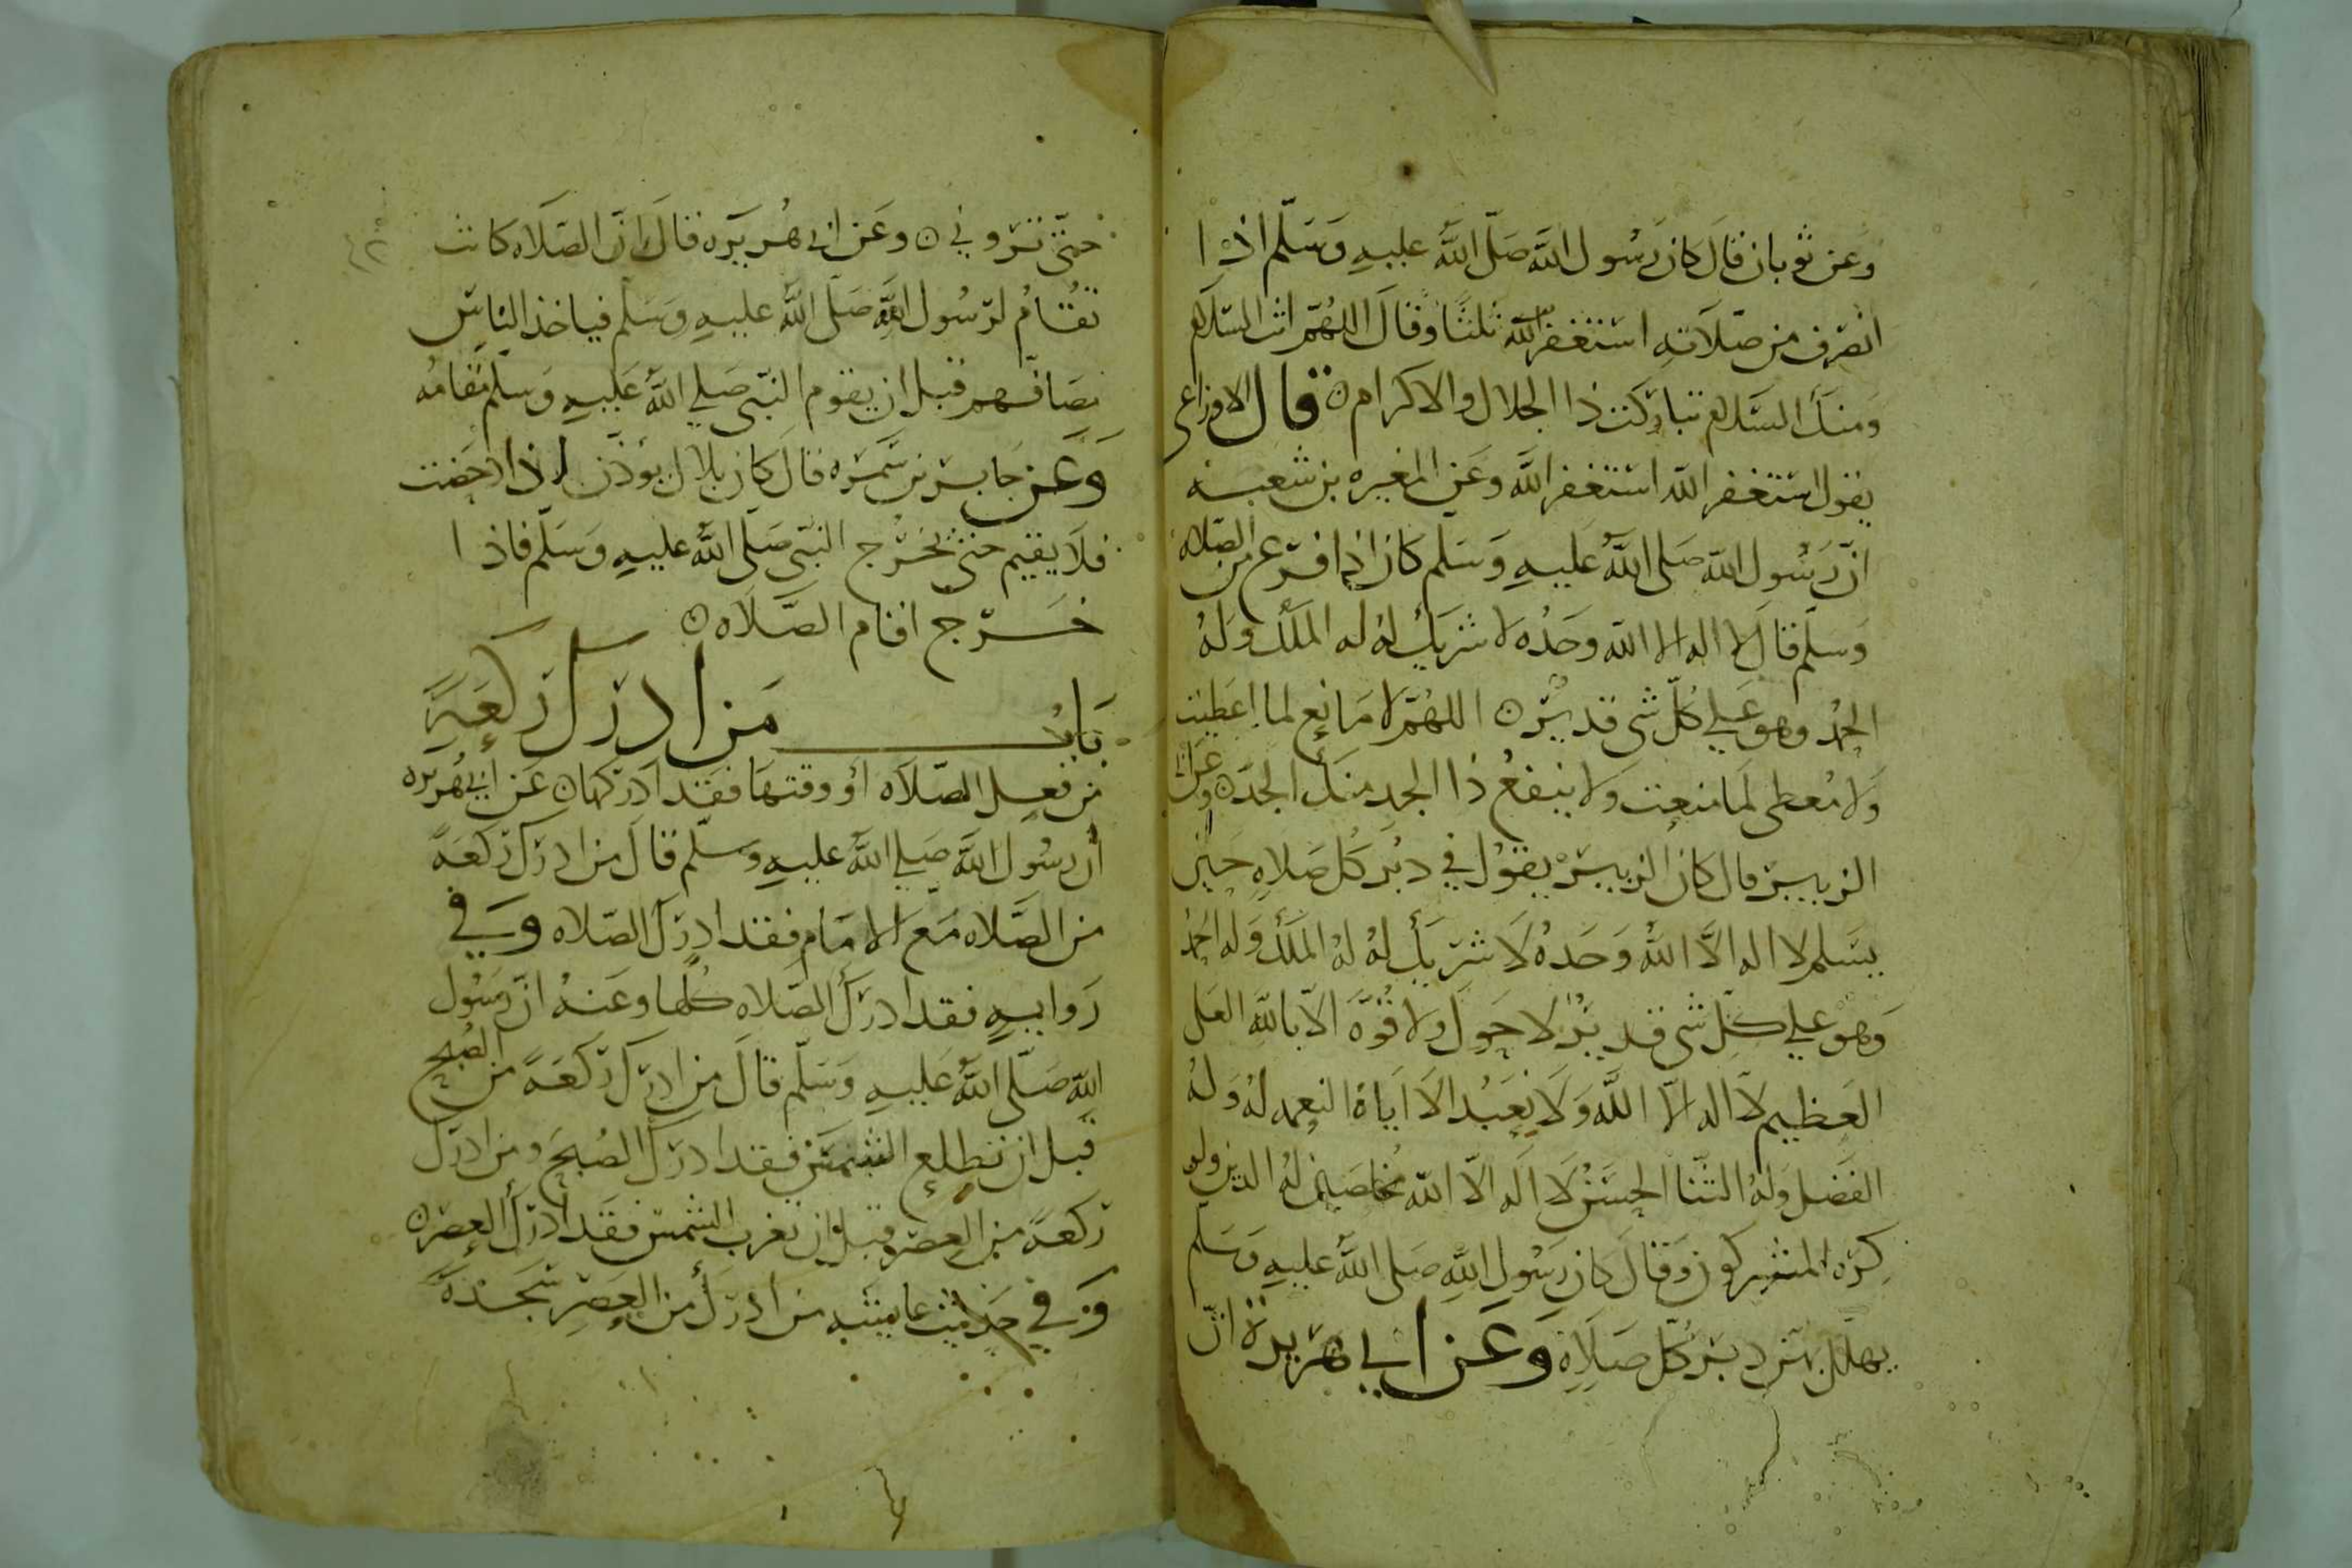 وعن ثوبان قال كان رسول الله صلى الله عليه وسلم اذا
انصرف من صلاته استغفر الله ثلثا وقال اللهم انت السلام
ومنك السلام تباركت ذا الجلال والاكرام ن قال الاوزاعي
يقول استغفر الله استغفر الله وعن المغيره بن شعبه
ان رسول الله صلى الله عليه وسلم كان اذا فرغ من الصلاه
وسلم قال لا اله الا الله وحده لا شريك له له الملك وله
الحمد وهو على كل شي قدير ن اللهم لا مانع لما اعطيت
ولا معطي لما منعت ولا ينفع ذا الجد منك الجد ن وعن ابي
الزبير قال كان الزبير يقول في دبر كل صلاه حين
يسلم لا اله الا الله وحده لا شريك له له الملك وله الحمد
وهو على كل شي قدير لا حول ولا قوة الا بالله العلي
العظيم لا اله الا الله ولا نعبد الا اياه النعمه له وله
الفضل وله الثنا الحسن لا اله الا الله مخلصين له الدين ولو
كره المشركون وقال كان رسول الله صلى الله عليه وسلم
يهلل بهن دبر كل صلاه وعن ابي هريرة ان
حتى تروني ن وعن ابي هريره قال ان الصلاه كانت
تقام لرسول الله صلى الله عليه وسلم فياخذ الناس
مصافهم قبل ان يقوم النبي صلي الله عليه وسلم مقامه
وعن جابر بن سمره قال كان بلال يوذن اذا دحضت
فلا يقيم حتى يخرج النبي صلى الله عليه وسلم فاذا
خرج اقام الصلاه ن
باب من ادرك ركعة
من فعل الصلاه أو وقتها فقد ادركها ن عن ابي هريره
أن رسول الله صلي الله عليه وسلم قال من ادرك ركعة
من الصلاه مع الامام فقد ادرك الصلاه وفي
روايه فقد ادرك الصلاه كلها وعنه ان رسول
الله صلى الله عليه وسلم قال من ادرك ركعة من الصبح
قبل ان تطلع الشمس فقد ادرك الصبح ومن ادرك
ركعة من العصر قبل ان تغرب الشمس فقد ادرك العصر ن
وفي حديث عايشه من ادرك من العصر سجدة